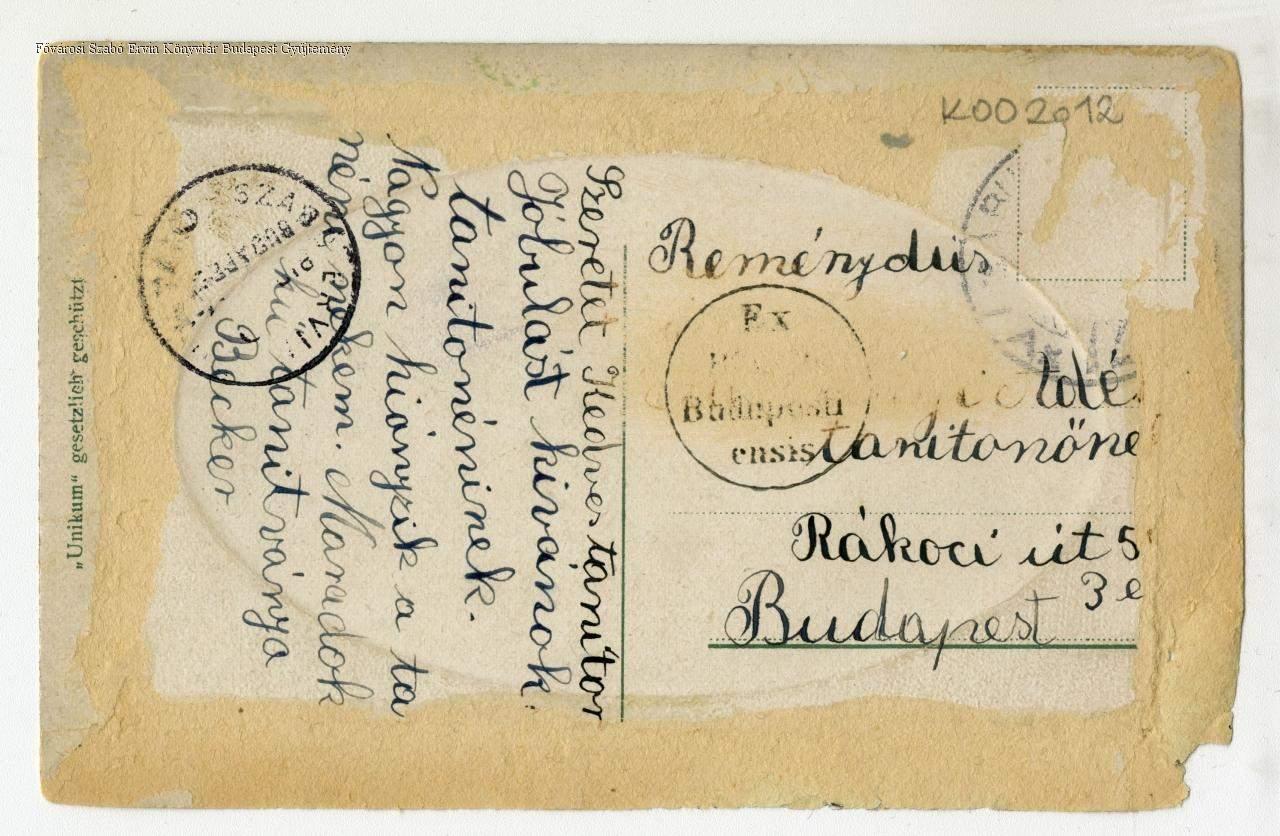 Fővárosi Szabó Ervin Könyvtár Budapest Gyűjtemény
K002012
„Unikum“ gesetzlich geschützt
Szeretet Kedves tanitor
Jóbulást kivánok
tanitonéninek.
Nagyon hiányzik a ta
kem. Maradok
tanitványa
Bocker
Reménydús
Adé
tanitonőne
Rákoci út 5
3 e
Budapest
Ex
Budapesti
ensis